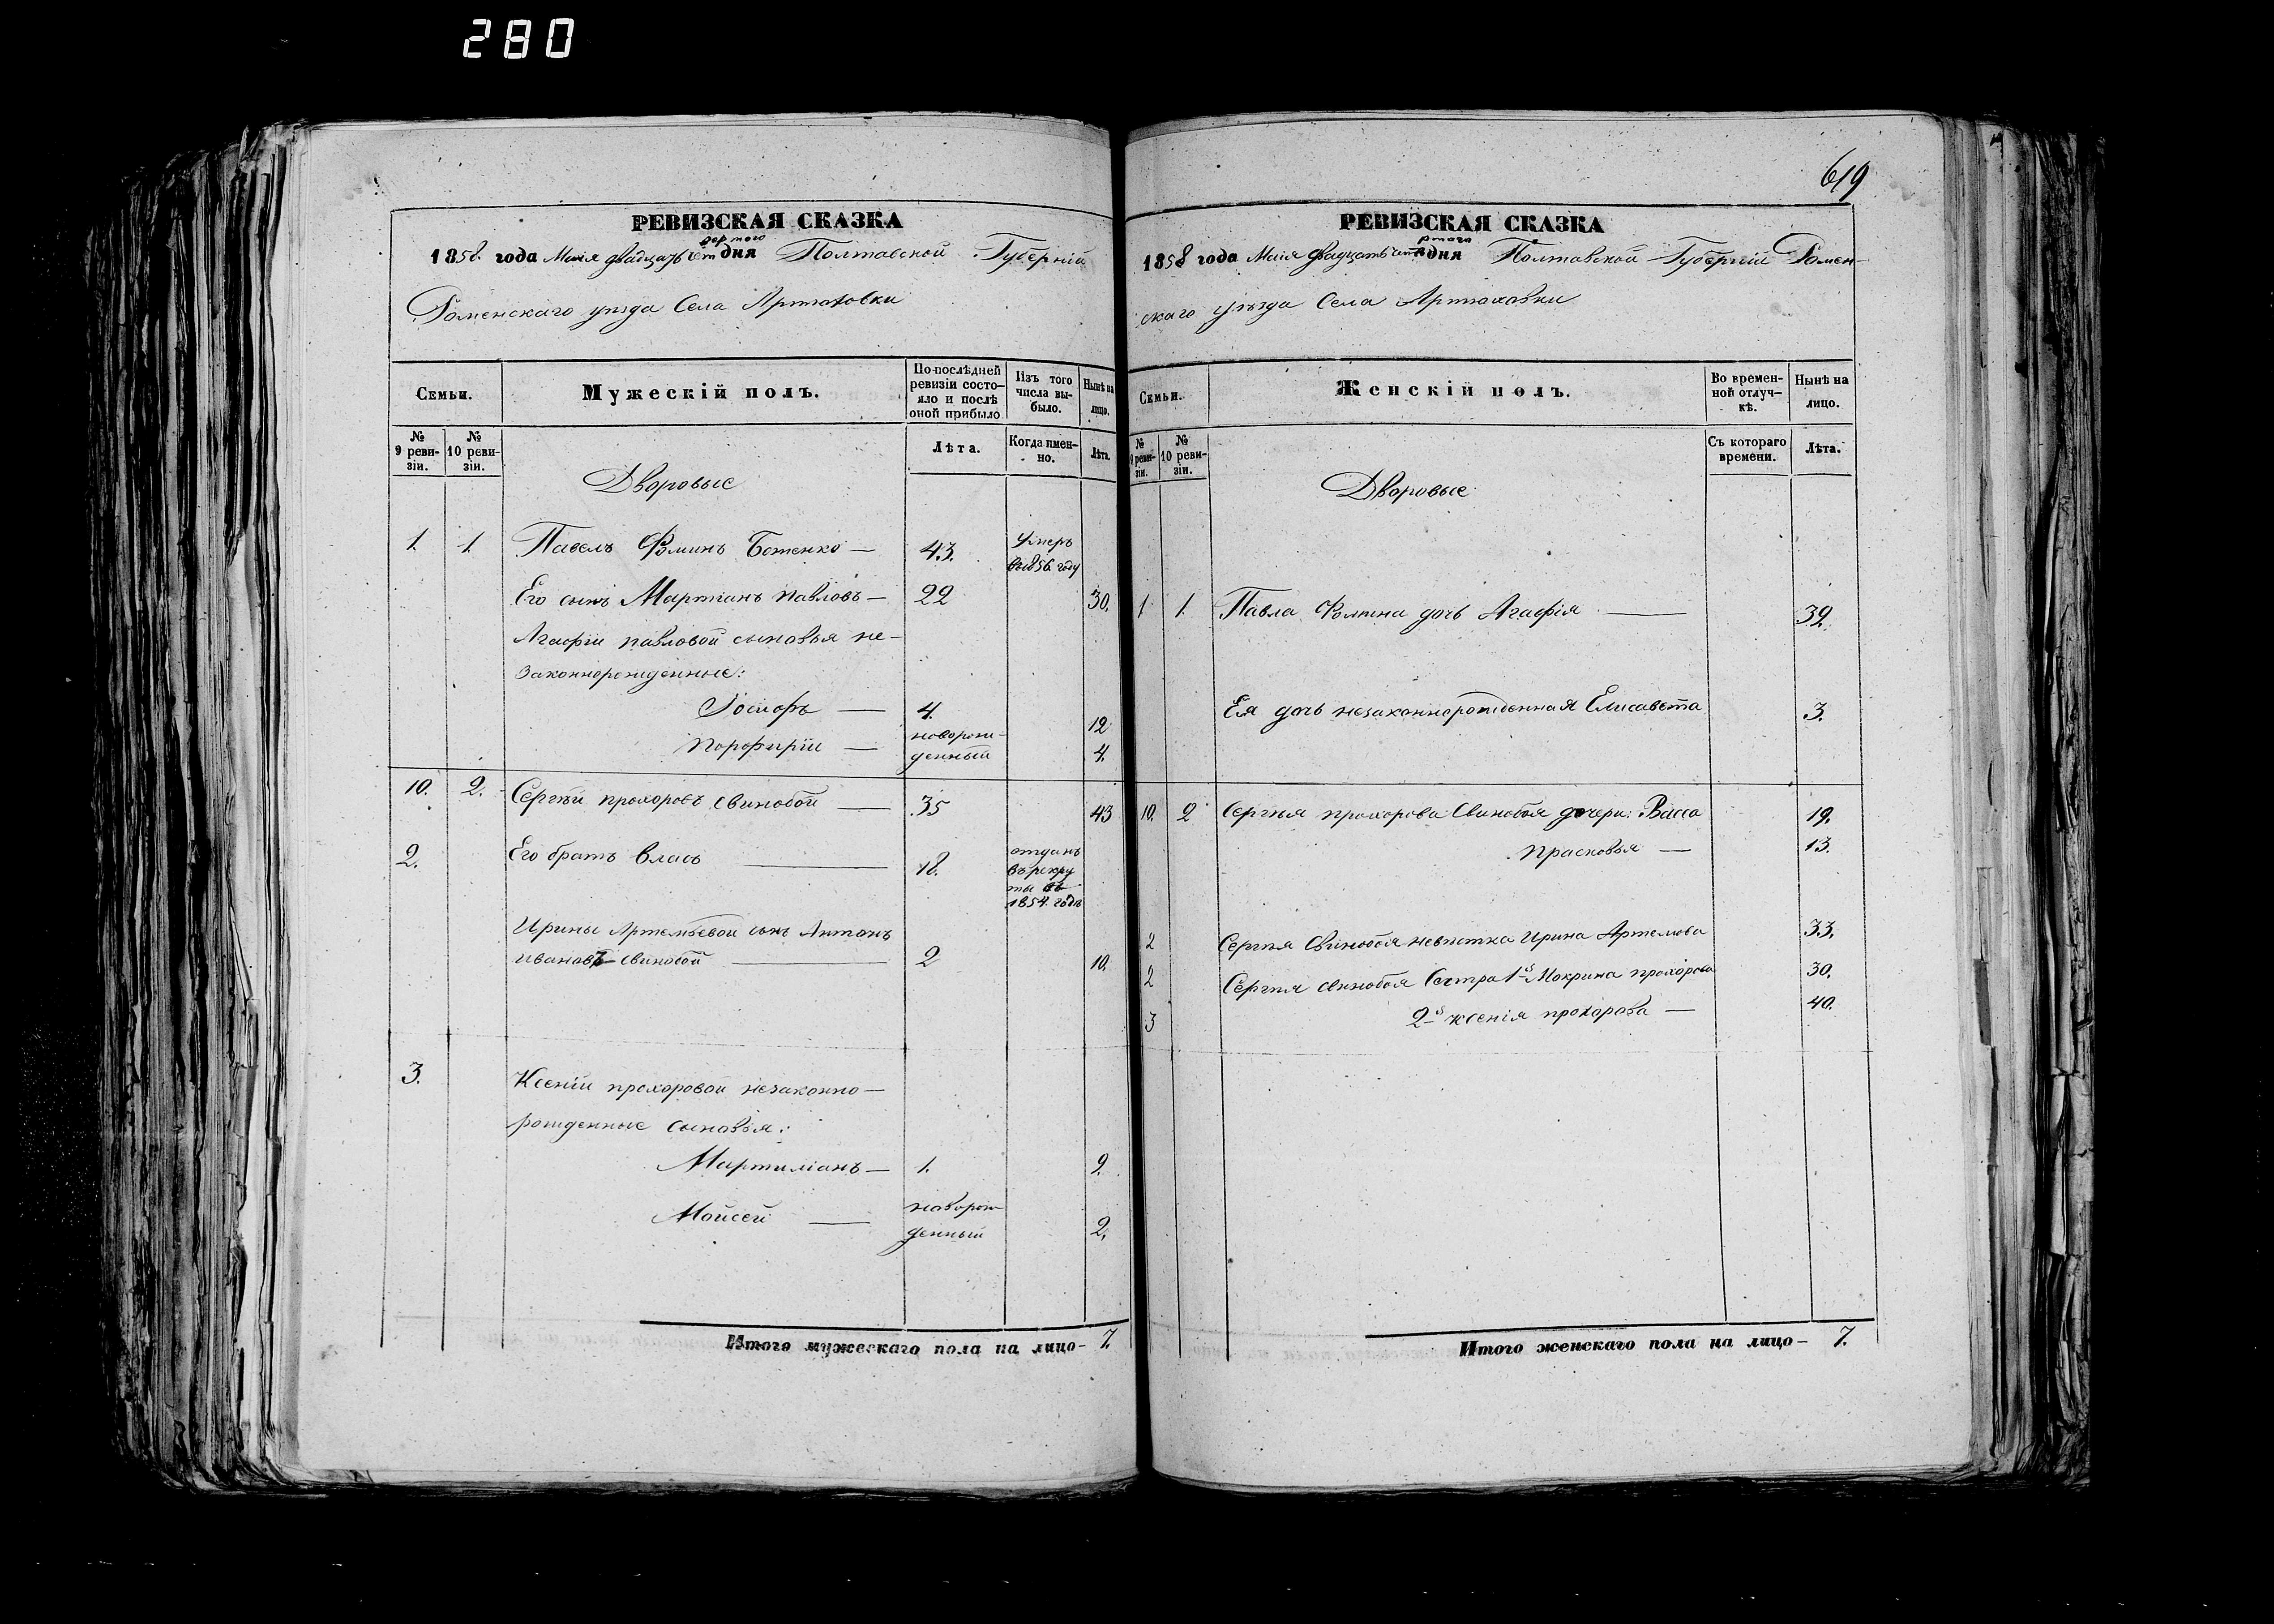 280
619
РЕВИЗСКАЯ СКАЗКА
1858 года Маія двадцать чет
вертого
дня Полтавской Губерніи
Роменскаго уѣзда Села Артюховки
Семьи.
Мужескій полъ.
По послѣдней ревизіи состо-
яло и послѣ
оной прибыло
Изъ того
числа вы-
было.
Нынѣ на
лицо.
№
9 реви-
зіи.
№
10 реви-
зіи.
Лѣта.
Когда имен-
но.
Лѣта.
Дворовые
1. 1. Павелъ Фоминъ Боженко — 43. Умеръ
въ 1856 году
Его сынъ Мартіанъ Павловъ — 22 30.
Агафіи Павловой сыновья не-
законнорожденные:
— 4. 12
Порфирій — новорож-
денный 4.
10. 2. Сергѣй Прохоровъ Свинобой — 35 43
2. Его братъ Власъ — 18. отданъ
въ рекру
ты въ
1854 годѣ
Ирины Артемьевой сынъ Антонъ
Ивановъ Свинобой — 2 10.
3. Ксеніи Прохоровой незаконно-
рожденные сыновья:
Мартиміанъ — 1. 9.
Мойсей — новорож-
денный 2.
Итого мужескаго пола на лицо - 7.
РЕВИЗСКАЯ СКАЗКА
1858 года Маія двадцать чет
ртаго
дня Полтавской Губерніи Ромен-
скаго уѣзда Села Артюховки
Семьи.
Женскій полъ.
Во времен-
ной отлуч-
кѣ.
Нынѣ на
лицо.
№
9 реви-
зіи.
№
10 реви-
зіи.
Съ котораго
времени.
Лѣта.
Дворовые
1 1. Павла Фомина дочь Агафія — 39.
Ея дочь незаконнорожденная Елисавета 3.
10. 2 Сергѣя Прохорова Свинобоя дочери: Васса 19.
Прасковья — 13.
2 Сергѣя Свинобоя невѣстка Ирина Артемова 33.
2 Сергѣя Свинобоя Сестра 1я Мокрина Прохорова 30.
3 2я Ксенія Прохорова — 40.
Итого женскаго пола на лицо - 7.